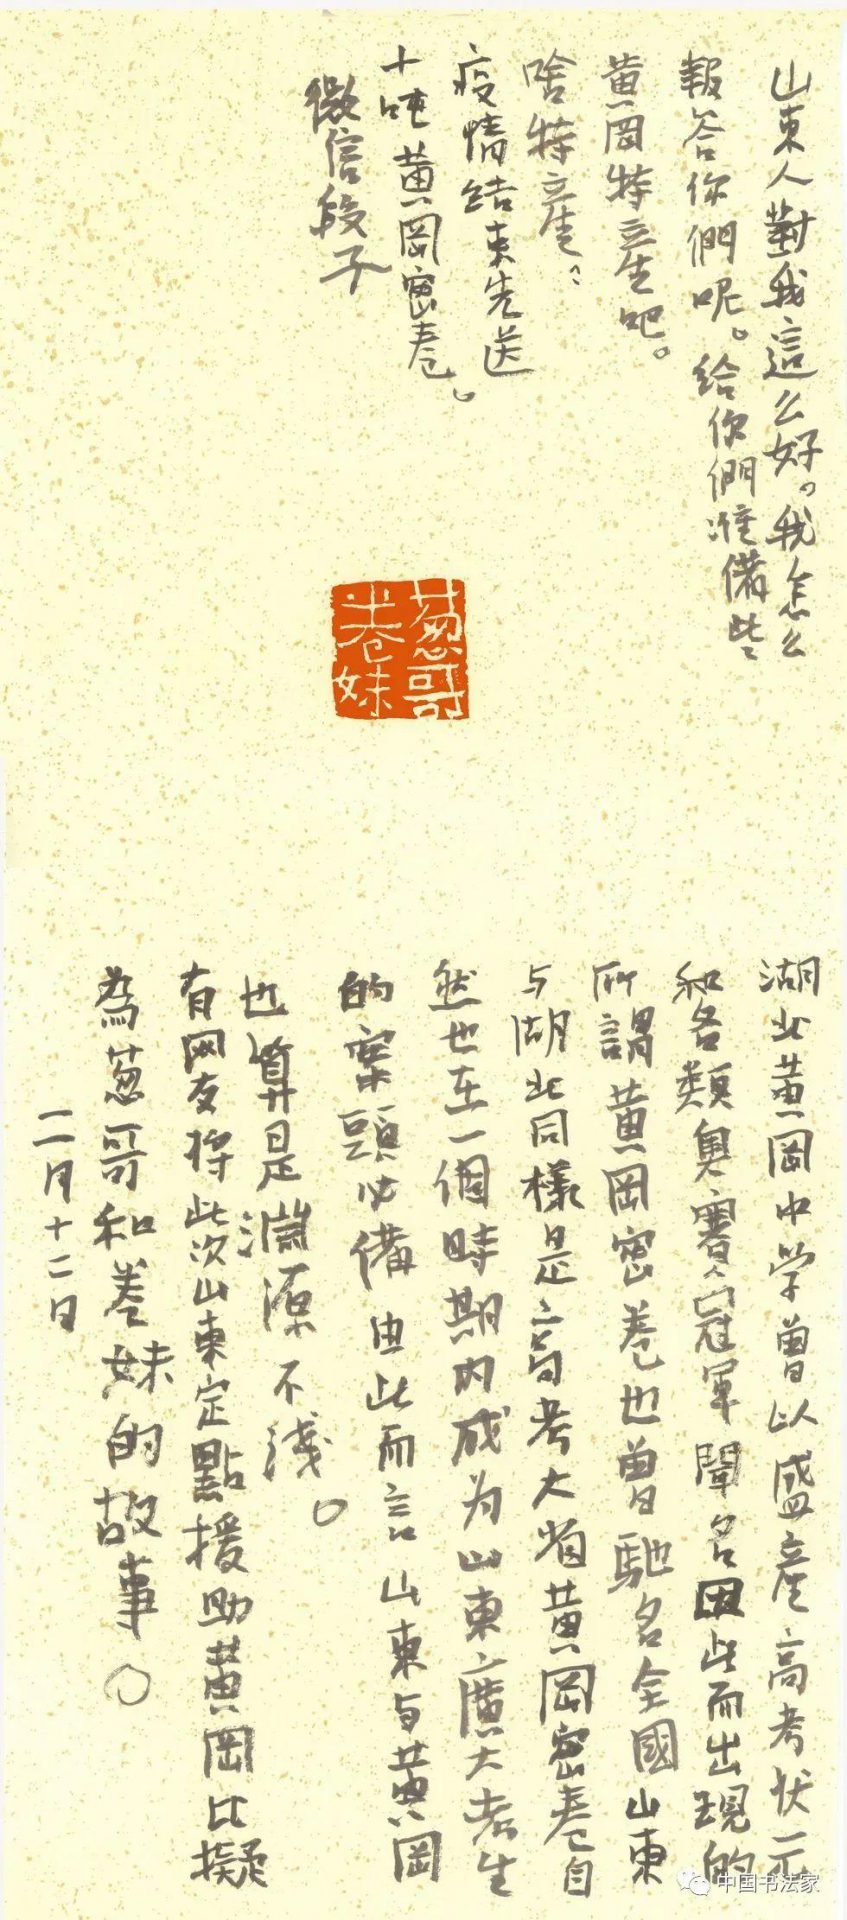 山東人對我這么好。我怎么
報答你們呢。給你們準備些
黄岡特産吧。
啥特産。
疫情结束先送
十吨黄岡密卷。
微信段子
葱哥
卷妹
湖北黄岡中学曾以盛産高考状元
和各類奥賽冠軍聞名因此而出現的
所謂黄岡密卷也曾馳名全國山東
与湖北同樣是高考大省黄岡密卷自
然也在一個時期内成为山東廣大考生
的案頭必備由此而言山東与黄岡
也算是淵源不淺。
有网友将此次山東定點援助黄岡比擬
為葱哥和卷妹的故事。
二月十二日
中国书法家